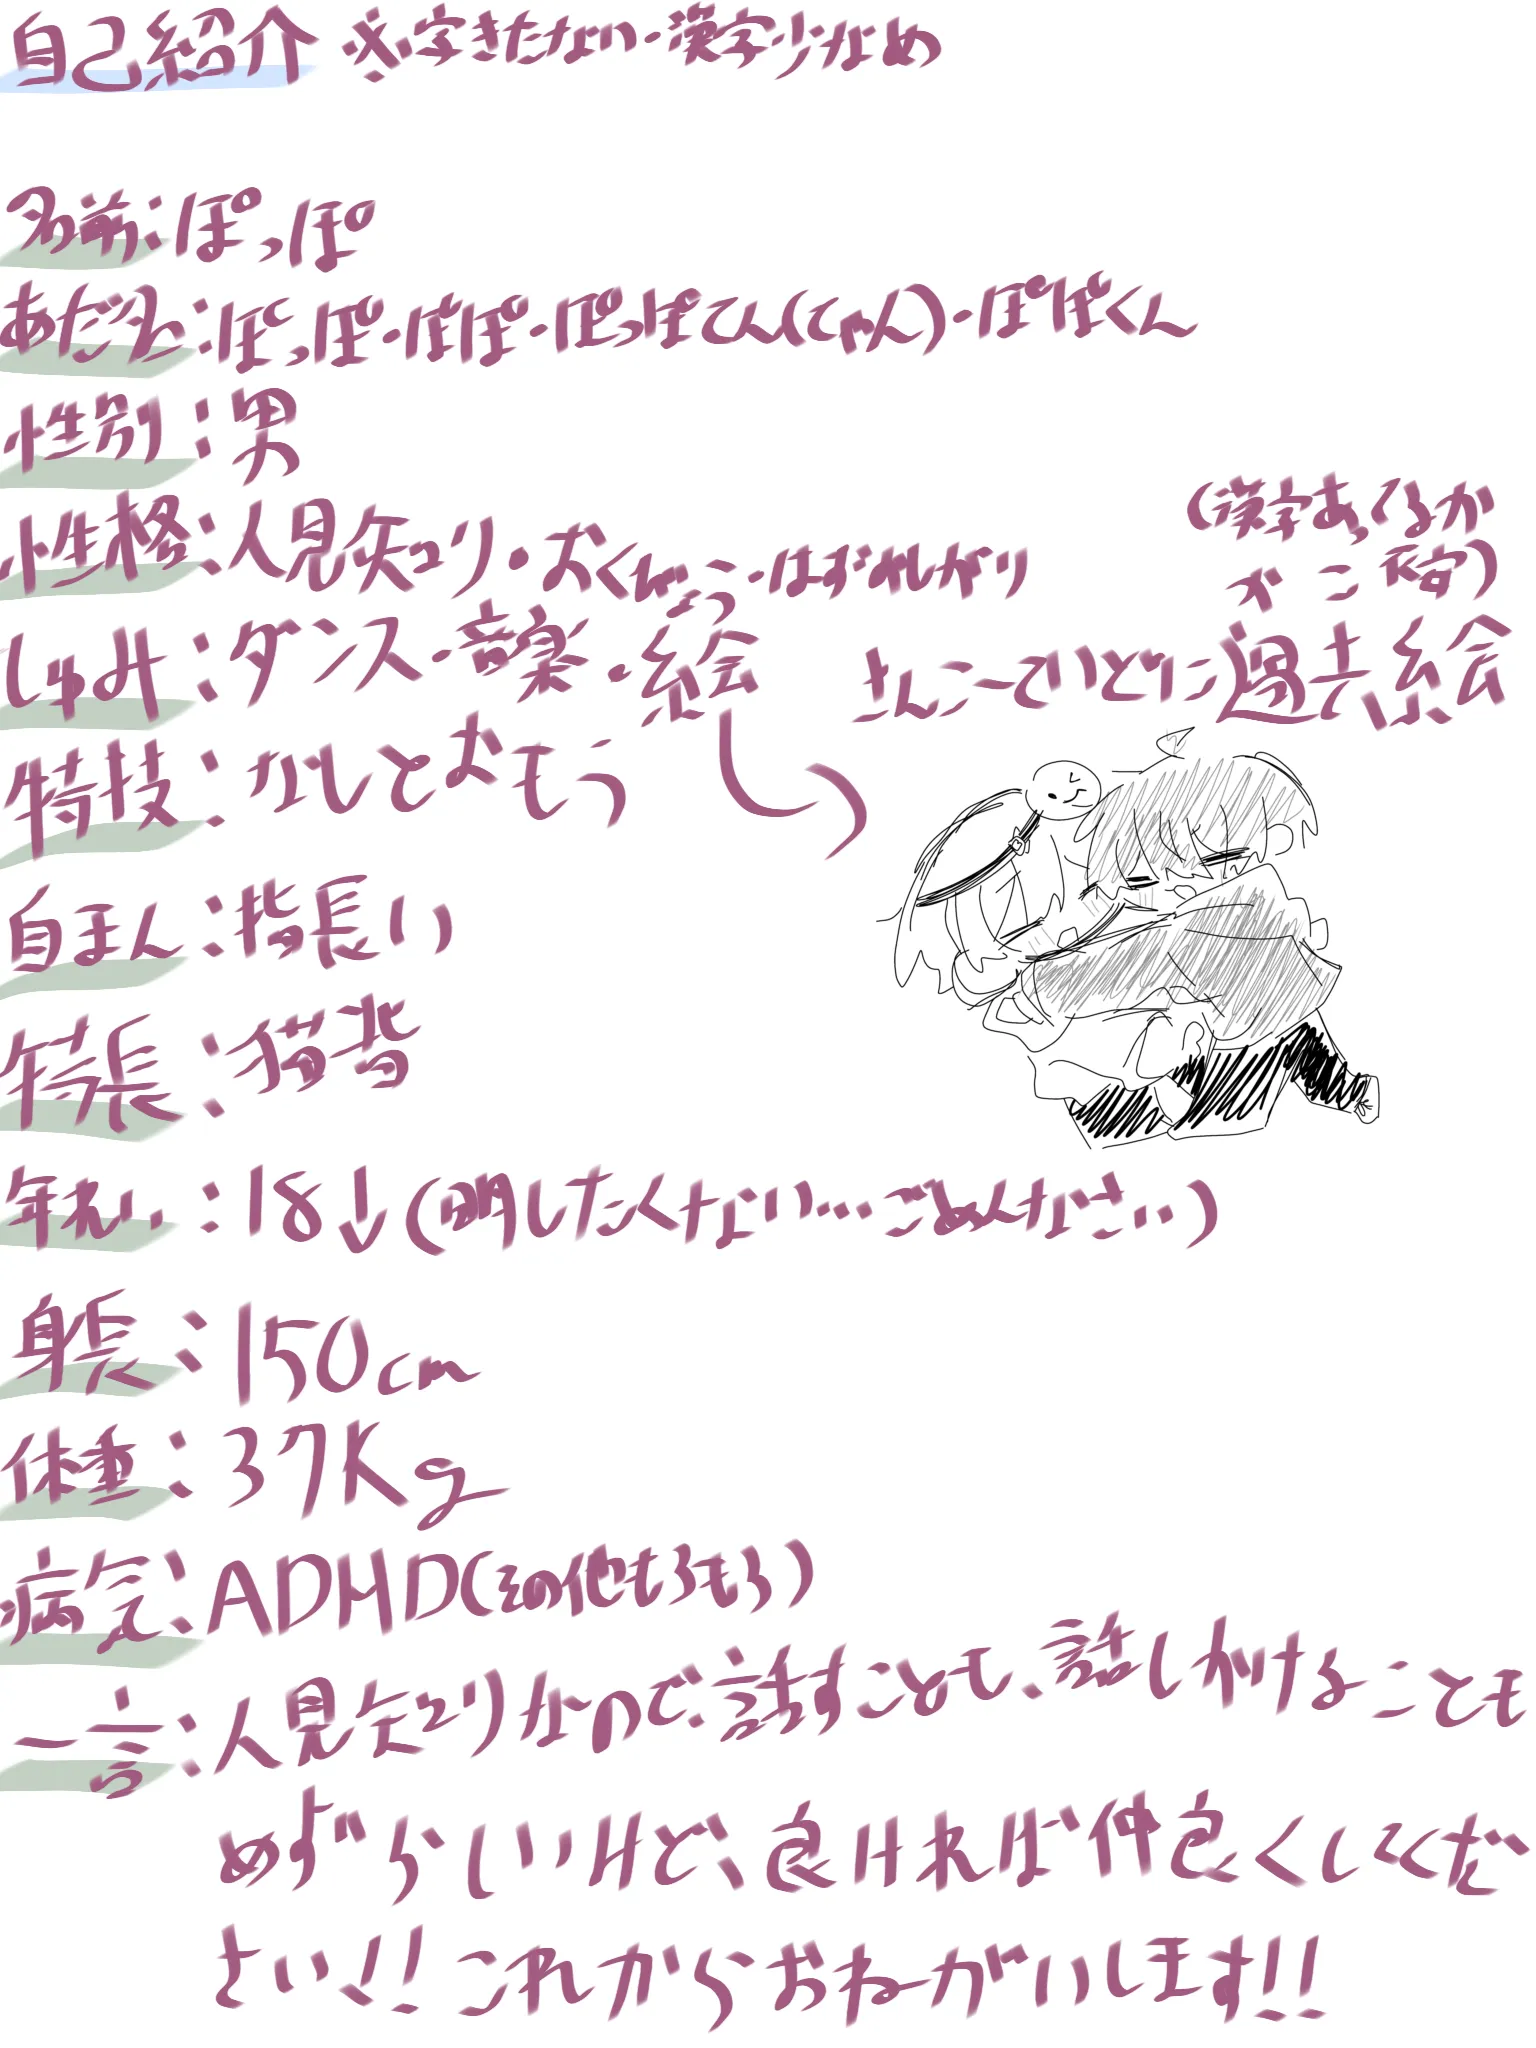 自己紹介 ※字きたない・漢字少なめ
名前:ぽっぽ
あだな:ぽっぽ・ぽぽ・ぽっぽてん(てゃん)・ぽぽくん
性別:男
性格:人見知り・おくびょう・はずれしがり
(漢字あってるか
が こ 不安)
しゅみ:ダンス・音楽・絵
さんこーていどに過去絵
特技:なしとおもう
自まん:指長い
特長:猫背
年れい:18↓(明したくない…ごめんなさい)
身長:150cm
体重:37Kg
病気:ADHD(その他もろもろ)
一言:人見知りなので、話すことも、話しかけることも
めずらしいけど、良ければ仲良くしてくだ
さい!!これからおねがいします!!